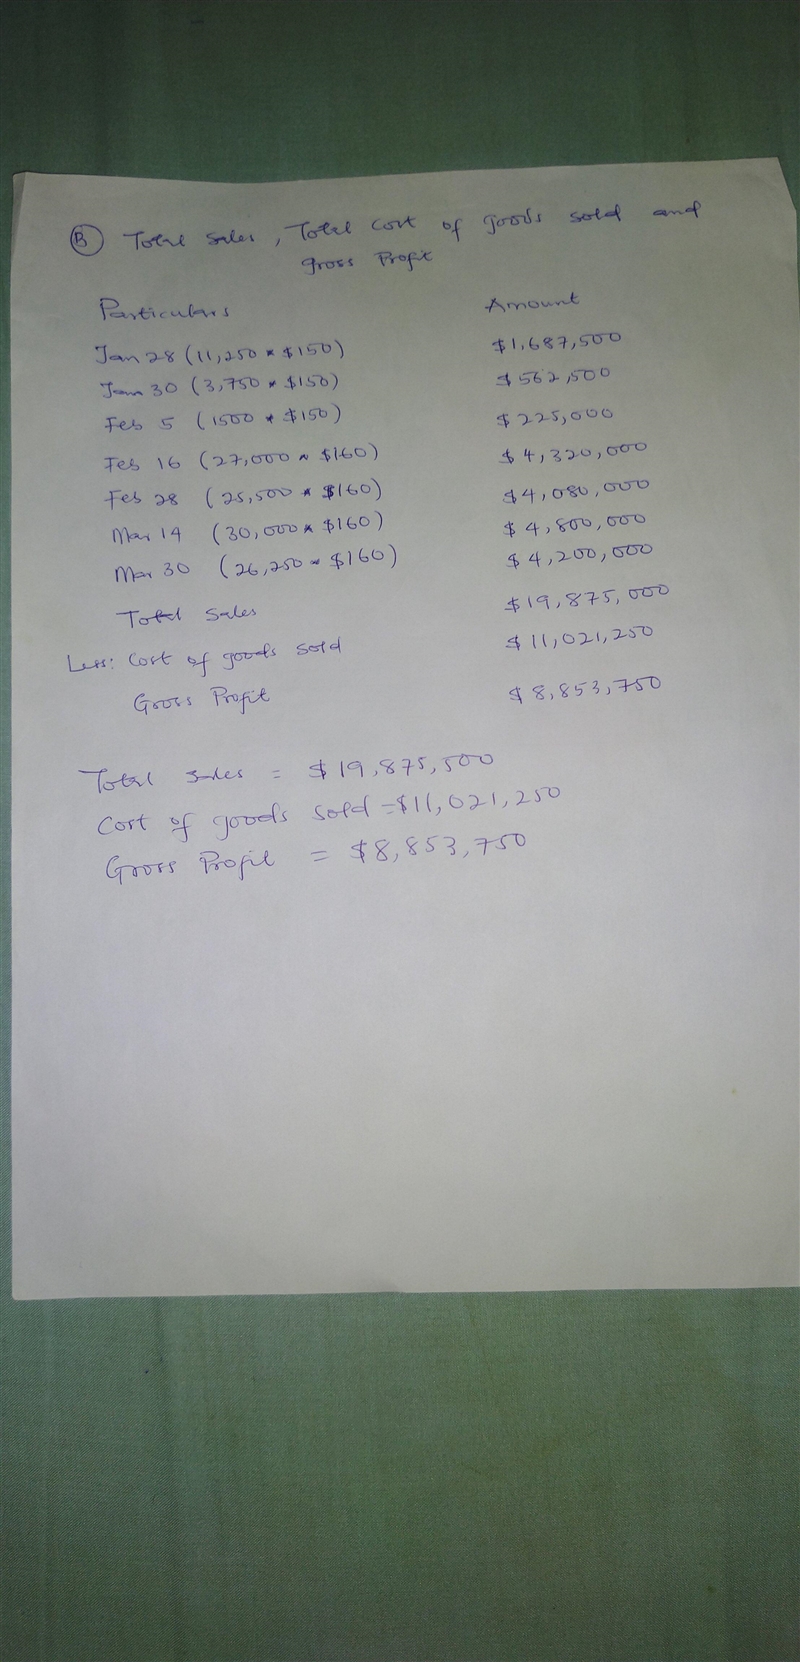 B Total Sales, Total Cost of goods sold and
gross Profit
Particulars Amount
Jan 28 (11,250 * $150) $1,687,500
Jan 30 (3,750 * $150) $562,500
Feb 5 (1500 * $150) $225,000
Feb 16 (27,000 * $160) $4,320,000
Feb 28 (25,500 * $160) $4,080,000
Mar 14 (30,000 * $160) $4,800,000
Mar 30 (26,250 * $160) $4,200,000
Total Sales $19,875,000
Less: Cost of goods sold $11,021,250
Gross Profit $8,853,750
Total Sales = $19,875,500
Cost of goods sold =$11,021,250
Gross Profit = $8,853,750